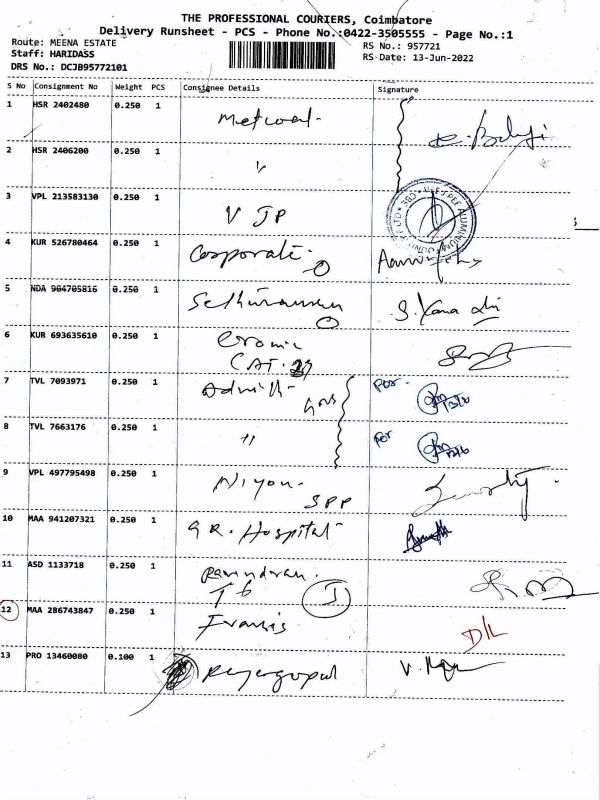 THE PROFESSIONAL COURIERS, Coimbatore
Delivery Runsheet - PCS - Phone No.:0422-3505555 - Page No.:1
Route: MEENA ESTATE
Staff: HARIDASS
DRS No.: DCJB95772101
RS No.: 957721
RS Date: 13-Jun-2022
S No Consignment No Weight PCS Consignee Details Signature
1 HSR 2402480 0.250 1
2 HSR 2406200 0.250 1 "
3 VPL 213583130 0.250 1 V JP
4 KUR 526780464 0.250 1 Corporate
5 NDA 904705816 0.250 1
6 KUR 693635610 0.250 1
7 TVL 7093971 0.250 1 For
8 TVL 7663176 0.250 1 " For
9 VPL 497795498 0.250 1 SPP
10 MAA 941207321 0.250 1 G.R. Hospital
11 ASD 1133718 0.250 1
12 MAA 286743847 0.250 1 Francis D/L
13 PRO 13460080 0.100 1 Rajagopal